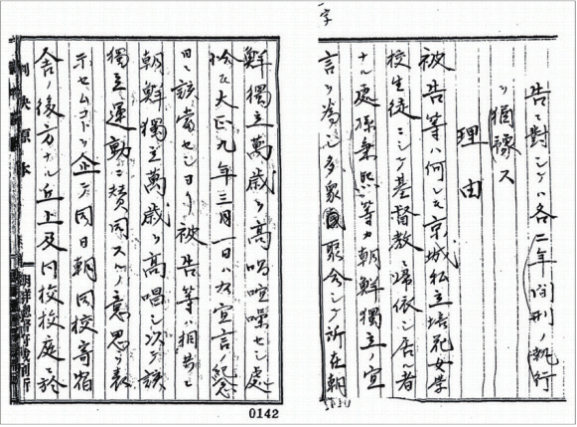 告ニ對シテハ各二年間刑ノ執行
ヲ猶豫ス
理由
被告等ハ何レモ京城私立培花女學
校生徒ニシテ基督教ニ帰依シ居ル者
ナル處孫秉熙等カ朝鮮獨立ノ宣
言ヲ為シ多衆聚合シテ所在朝
鮮獨立萬歳ヲ高唱喧噪セシ處
大正九年三月一日ハ右宣言ノ紀念
日ニ該當セシヨリ被告等ハ
朝鮮獨立萬歳ヲ高唱シ以テ該
獨立運動ニ賛同スルノ意思ヲ表
示セムコトヲ企テ同日朝同校寄宿
舎ノ後方ナル丘上及同校校庭ニ於
判決原本
朝鮮總督府裁判所
0142